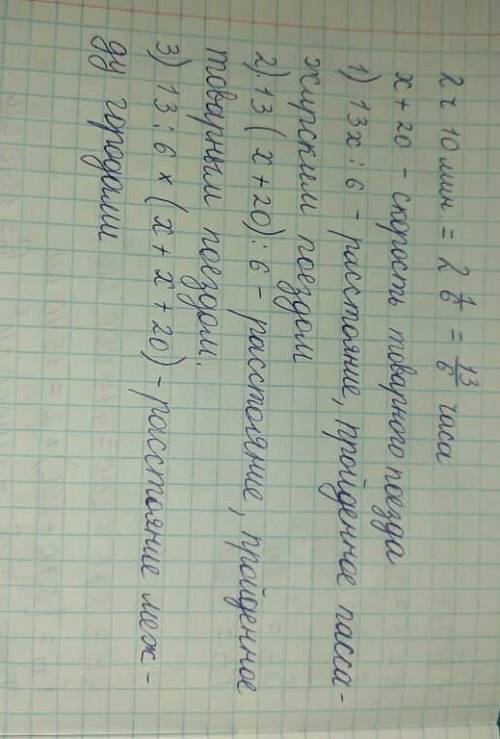 2 ч 10 мин = 2 1/6 = 13/6 часа
х + 20 - скорость товарного поезда
1) 13х : 6 - расстояние, пройденное пасса-
жирским поездом
2) 13 ( х + 20) : 6 - расстояние, пройденное
товарным поездом.
3) 13 : 6 × ( х + х + 20) - расстояние меж-
ду городами